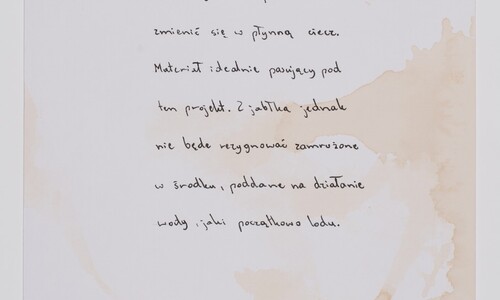 zmienić się w płynną ciecz.
Materiał idealnie pasujący pod
ten projekt. Z jabłka jednak
nie będe rezygnować zamrożone
w środku, poddane na działanie
wody, jaki początkowo lodu.